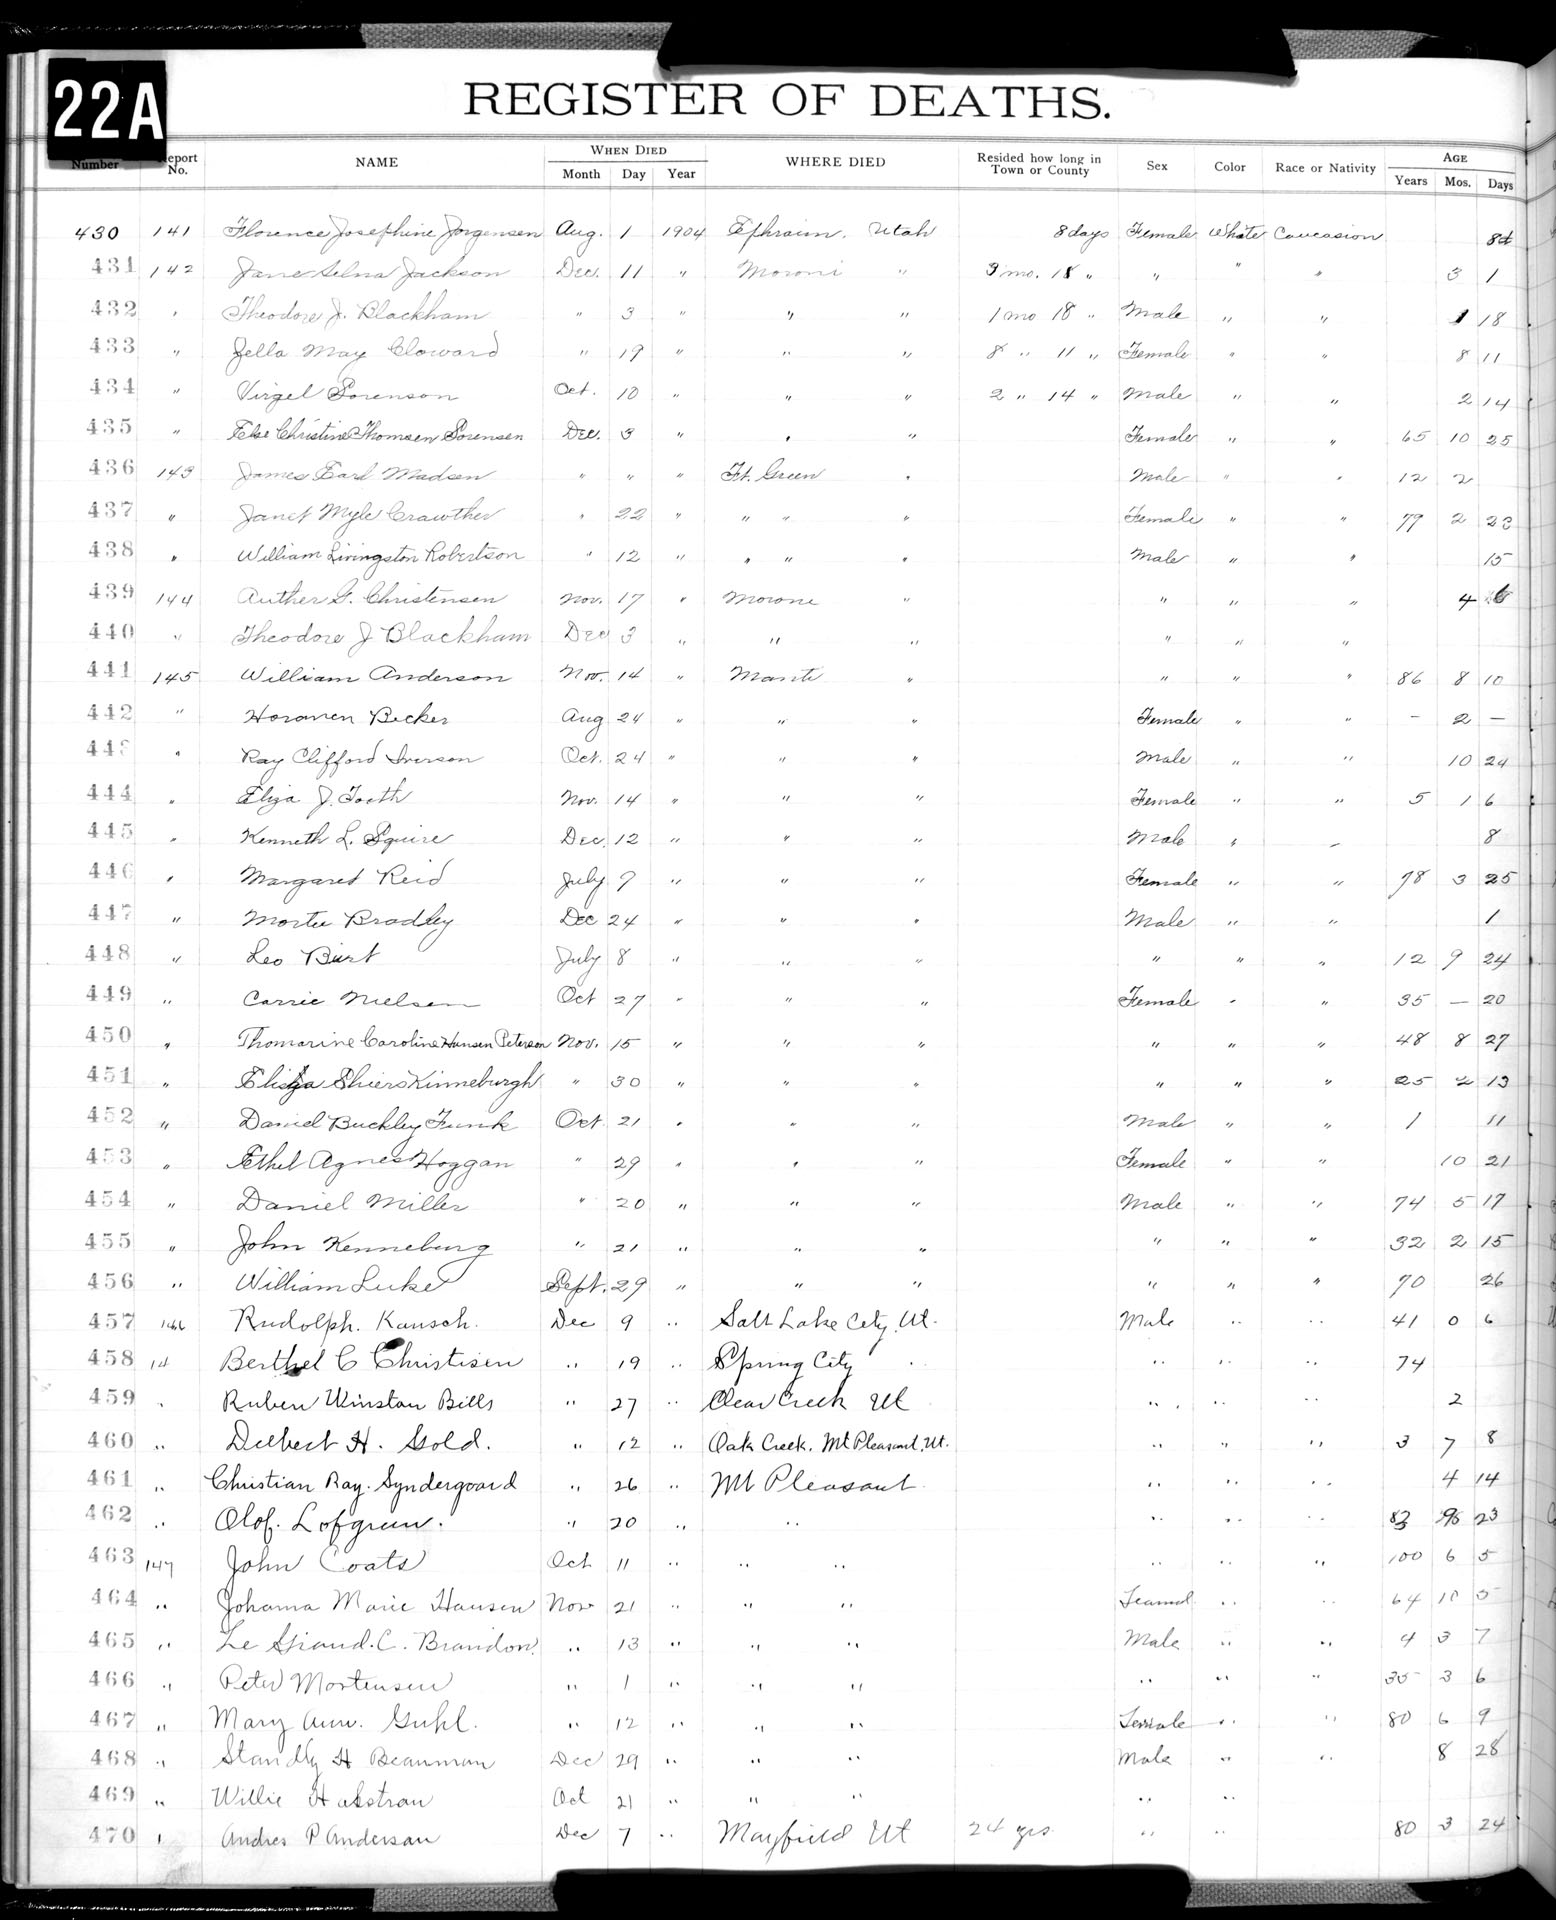 22A
REGISTER OF DEATHS.
Number Report No. NAME WHEN DIED Month Day Year WHERE DIED Resided how long in Town or County Sex Color Race or Nativity AGE Years Mos. Days
430 141 Florence Josephine Jorgensen Aug. 1 1904 Ephraim, Utah 8 days Female White Caucasion 8d
431 142 Jane Selna Jackson Dec. 11 " Moroni " 3 mo. 18 " " " " 3 1
432 " Theodore J. Blackham " 3 " " " 1 mo 18 " Male " " 1 18
433 " Zella May Cloward " 19 " " " 8 " 11 " Female " " 8 11
434 " Virgel Sorenson Oct. 10 " " " 2 " 14 " Male " " 2 14
435 " Else Christine Thomsen Sorensen Dec. 3 " " " Female " " 65 10 25
436 143 James Earl Madsen " " " Ft. Green " Male " " 12 2
437 " Janet Myle Crawther " 22 " " " " Female " " 79 2 23
438 " William Livingston Robertson " 12 " " " " Male " " 15
439 144 Auther G. Christensen Nov. 17 " Morone " " " " 4
440 " Theodore J Blackham Dec 3 " " " " " "
441 145 William Anderson Nov. 14 " Manti " " " " 86 8 10
442 " Horomen Becker Aug 24 " " " Female " " – 2 –
443 " Ray Clifford Iverson Oct. 24 " " " Male " " 10 24
444 " Eliza J. Tooth Nov. 14 " " " Female " " 5 1 6
445 " Kenneth L. Squire Dec. 12 " " " Male " " 8
446 " Margaret Reid July 9 " " " Female " " 78 3 25
447 " Bradley Dec 24 " " " Male " " 1
448 " Leo Burt July 8 " " " " " " 12 9 24
449 " Carrie Nielsen Oct 27 " " " Female " " 35 – 20
450 " Thomarine Caroline Hansen Peterson Nov. 15 " " " " " " 48 8 27
451 " Eliza Shiers Kinneburgh " 30 " " " " " " 25 2 13
452 " Daniel Buckley Funk Oct. 21 " " " Male " " 1 11
453 " Ethel Agnes Hoggan " 29 " " " Female " " 10 21
454 " Daniel Miller " 20 " " " Male " " 74 5 17
455 " John Kenneburg " 21 " " " " " " 32 2 15
456 " William Luke Sept. 29 " " " " " " 70 26
457 146 Rudolph. Kausch. Dec 9 " Salt Lake City, Ut. Male " " 41 0 6
458 14 Berthel C Christisen " 19 " Spring City " " " " 74
459 " Ruben Winston Bills " 27 " Clear Creek Ut " " " 2
460 " Delbert H. Gold. " 12 " Oak Creek. Mt Pleasant, Ut. " " " 3 7 8
461 " Christian Ray. Syndergoard " 26 " Mt Pleasant " " " 4 14
462 " Olof. Lofgreen. " 20 " " " " " 83 23
463 147 John Coats Oct 11 " " " " " " 100 6 5
464 " Johanna Marie Hansen Nov 21 " " " Feamal " " 64 10 5
465 " Le Grand. C. Brandon. " 13 " " " Male " " 4 3 7
466 " Peter Mortensen " 1 " " " " " " 35 3 6
467 " Mary Ann. Guhl. " 12 " " " Female " " 80 6 9
468 " Standly H Beauman Dec 29 " " " Male " " 8 28
469 " Willie Hakstrau Oct 21 " " " " "
470 " Andres P Anderson Dec 7 " Mayfield Ut 24 yrs " " 80 3 24